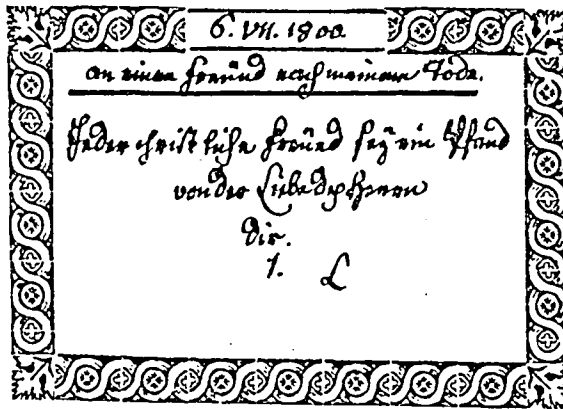 6. VII. 1800.
An einen Freund nach meinem Tode.
Jeder christliche Freund sey ein Pfand
von der Liebe des Herrn
dir.
1. L